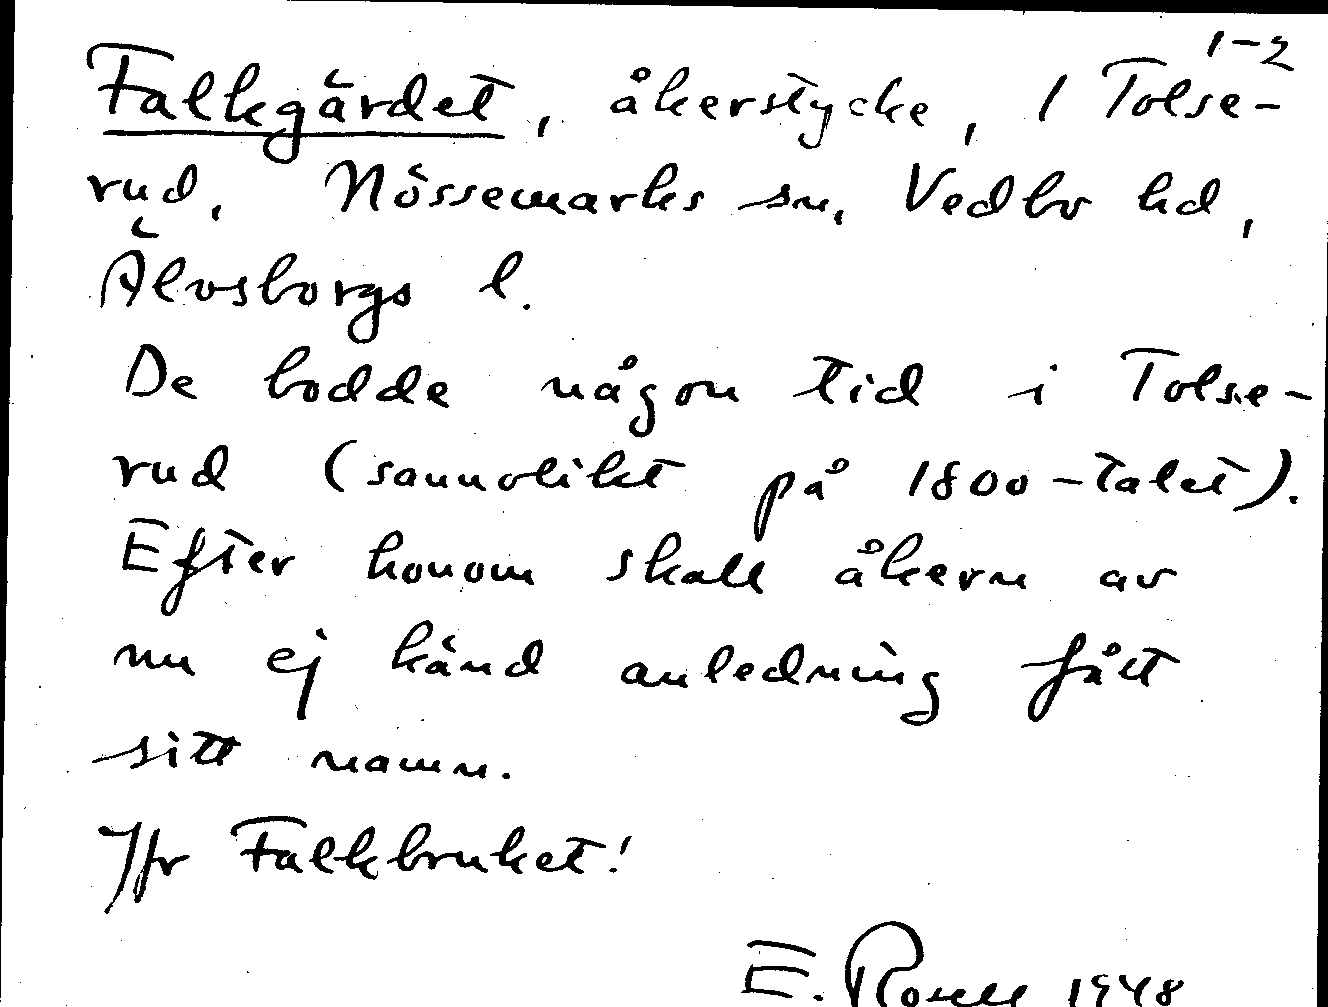 1-2
Falkgärdet, åkerstycke, 1 Tolse-
rud, Nössemarks sn, Vedbo hd,
Älvsborgs l.
De bodde någon tid i Tolse-
rud (sannolikt på 1800-talet).
Efter honom skall åkern av
nu ej känd anledning fått
sitt namn.
Jfr Falkbruket!
E. Rosell 1948